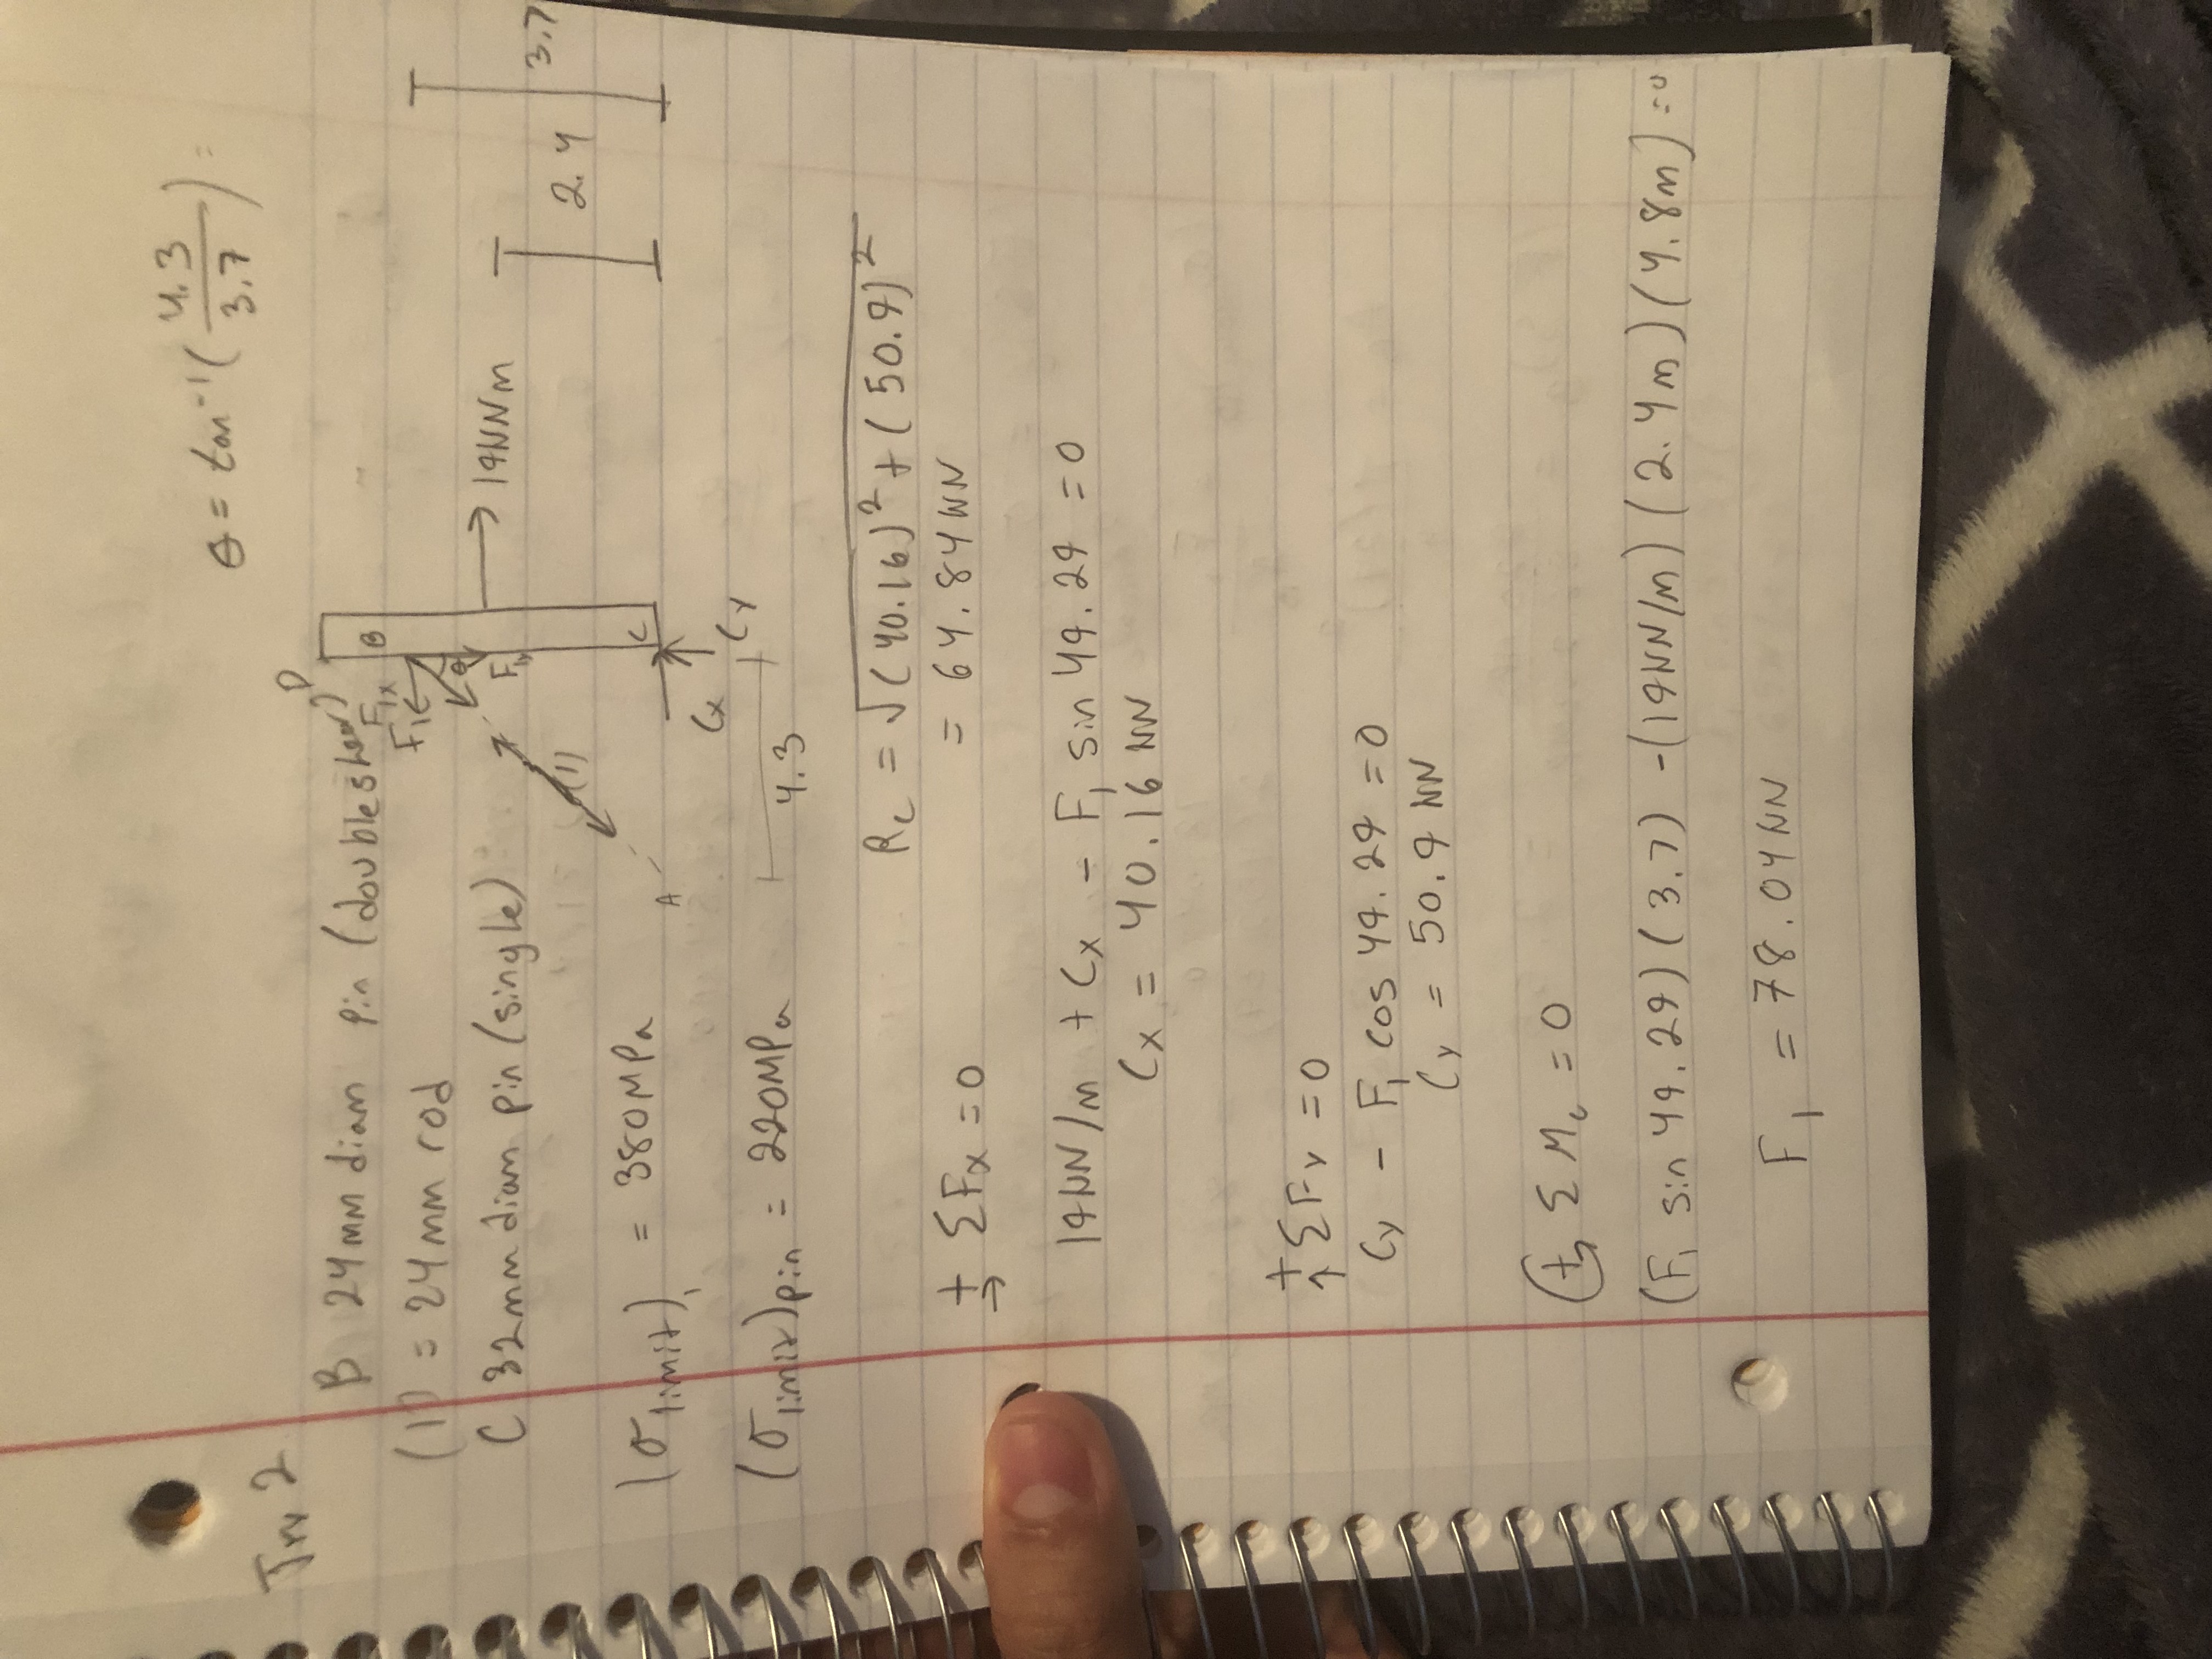 Jw 2
θ = tan⁻¹(4.3/3.7) =
B 24mm diam pin (double shear)
(1) = 24mm rod
C 32mm diam pin (single)
(σlimit)₁ = 380MPa
(σlimit)pin = 220MPa
D
B
F₁x
F₁
θ
F₁y
(1)
A
C
Cx
Cy
4.3
19kNm
2.4
3.7
Rc = √(40.16)² + (50.9)²
= 64.84 kN
+→ ΣFx = 0
19kN/m + Cx - F₁ sin 49.29 = 0
Cx = 40.16 kN
+↑ ΣFy = 0
Cy - F₁ cos 49.29 = 0
Cy = 50.9 kN
+ ΣMc = 0
(F₁ sin 49.29)(3.7) -(19kN/m)(2.4m)(4.8m) = 0
F₁ = 78.04kN